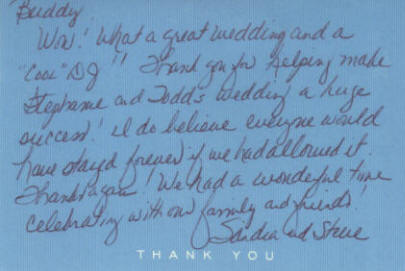 Buddy
Wow! What a great wedding and a
"Cool" DJ!! Thank you for helping make
Stephanie and Todd's wedding a huge
success! I do believe everyone would
have stayed forever if we had allowed it.
Thanks again! We had a wonderful time
celebrating with our family and friends!
Sandra and Steve
THANK YOU